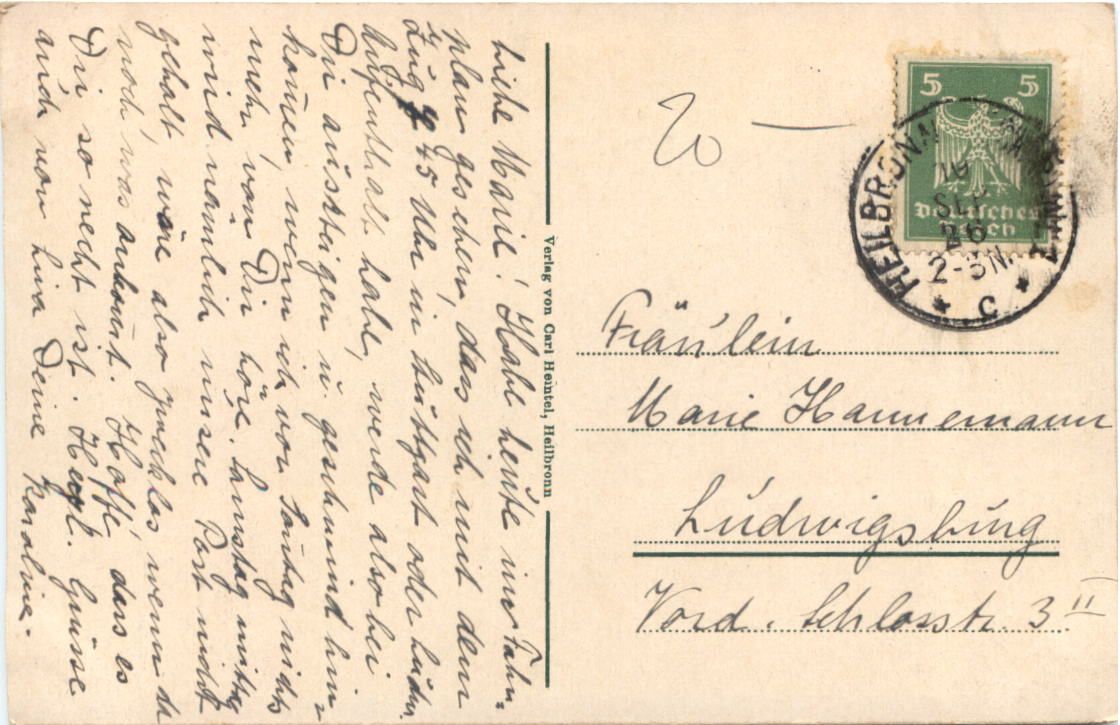 Liebe Marie! Habe heute im Fahr-
plan gesehen, dass ich mit dem
Zug 45 Uhr in Stuttgart oder Ludw.
Aufenthalt habe, werde also bei
Dir aussteigen u. geschwind hin-
kommen, wenn ich vor Samstag nichts
mehr von Dir höre. Samstag mittag
wird nämlich unsere Post nicht
geholt, wäre also zwecklos wenn da
noch was ankommt. Hoffe, dass es
Dir so recht ist. Herzl. Grüsse
auch von Lina Deine Karoline.
Verlag von Carl Heintel, Heilbronn
20 —
5 5
Deutsches
Reich
HEILBRONN
16
SEP
26
2-3 N.
* C *
Fräulein
Marie Hannemann
Ludwigsburg
Vord. Schlosstr. 3 II